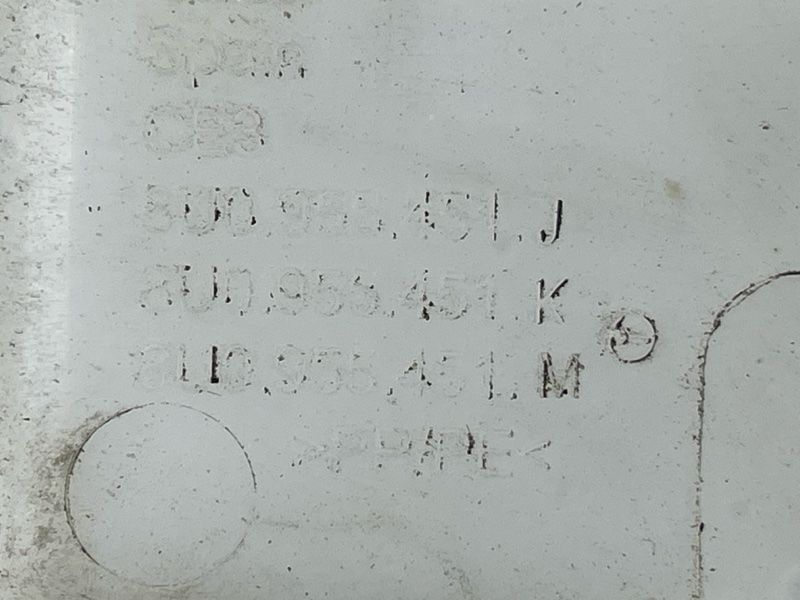 Spain
8U0.955.451.J
8U0.955.451.K
8U0.955.451.M
>PP/PE<